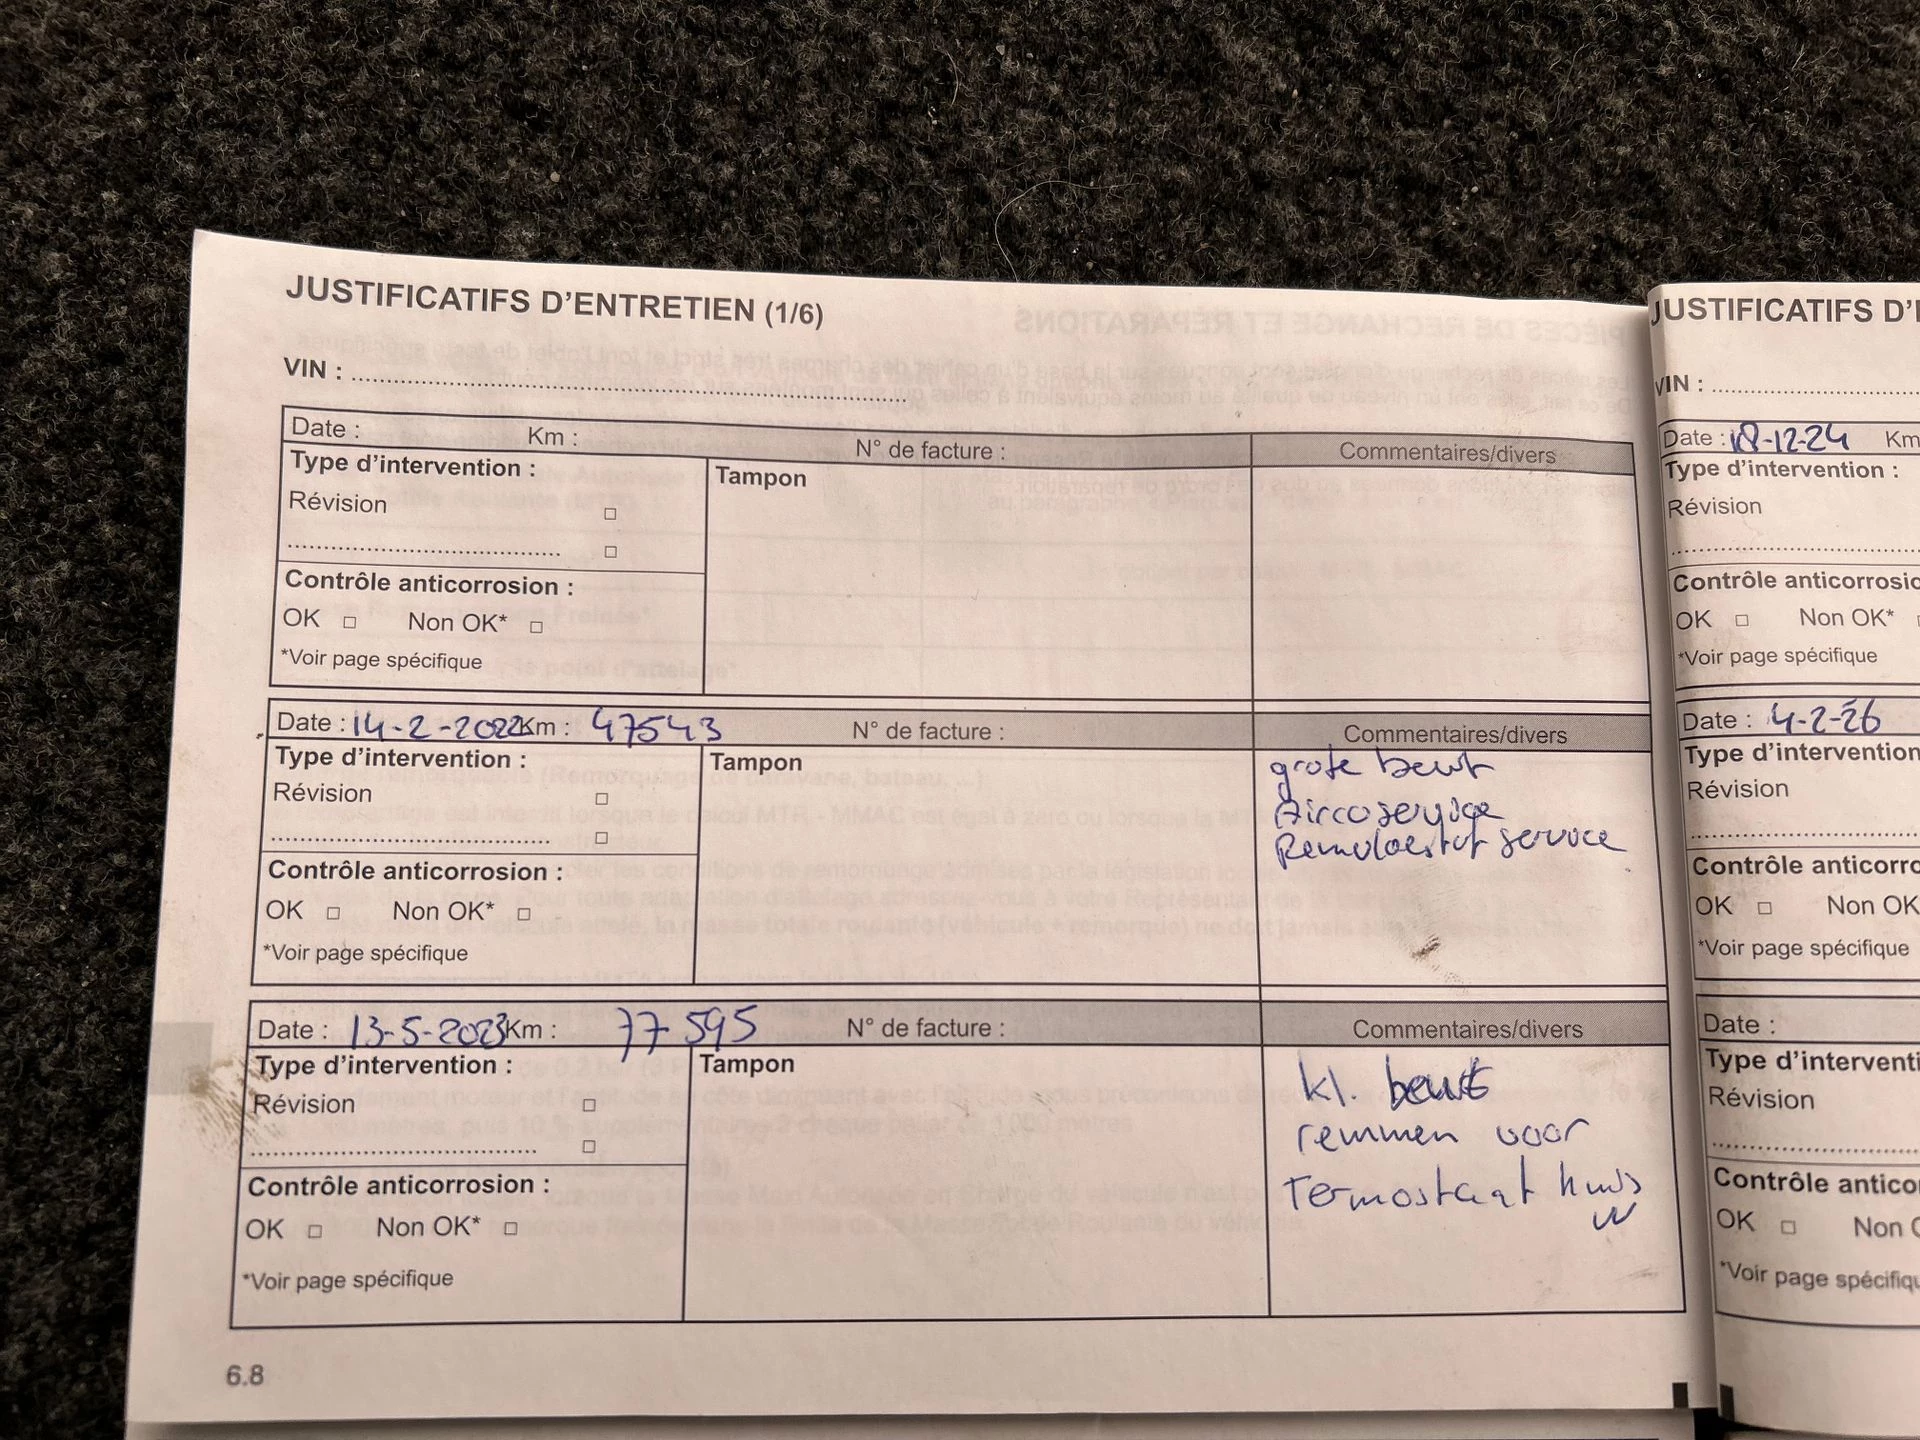 JUSTIFICATIFS D'ENTRETIEN (1/6)
VIN :
Date : Km : N° de facture : Commentaires/divers
Type d'intervention : Tampon
Révision
Contrôle anticorrosion :
OK Non OK*
*Voir page spécifique
Date : 14-2-2022 Km : 47543 N° de facture : Commentaires/divers
Type d'intervention : Tampon
Révision
Contrôle anticorrosion :
OK Non OK*
*Voir page spécifique
grote beurt
Aircoservice
service
Date : 13-5-2023 Km : 77 595 N° de facture : Commentaires/divers
Type d'intervention : Tampon
Révision
Contrôle anticorrosion :
OK Non OK*
*Voir page spécifique
kl. beurt
remmen voor
Termostaat huis
6.8
JUSTIFICATIFS D'
VIN :
Date : 18-12-24 Km
Type d'intervention :
Révision
Contrôle
OK Non OK*
*Voir page spécifique
Date : 4-2-26
Type d'intervention
Révision
Contrôle
OK Non OK
*Voir page spécifique
Date :
Type
Révision
Contrôle
OK Non
*Voir page